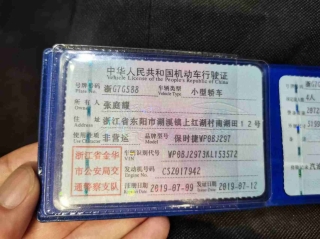 中华人民共和国机动车行驶证
Vehicle License of the People's Republic of China
号牌号码 浙G7GS88 车辆类型 小型轿车
Plate No. Vehicle Type
所有人 张庭耀
Owner
住址 浙江省东阳市湖溪镇上红湖村南湖12号
Address
使用性质 非营运 品牌型号 保时捷WP0BJ297
Use Character Model
浙江省金华市公安局交通警察支队
车辆识别代号
VIN
发动机号码
Engine No.
注册日期 2019-07-09 发证日期 2019-07-12
Register Date Issue Date